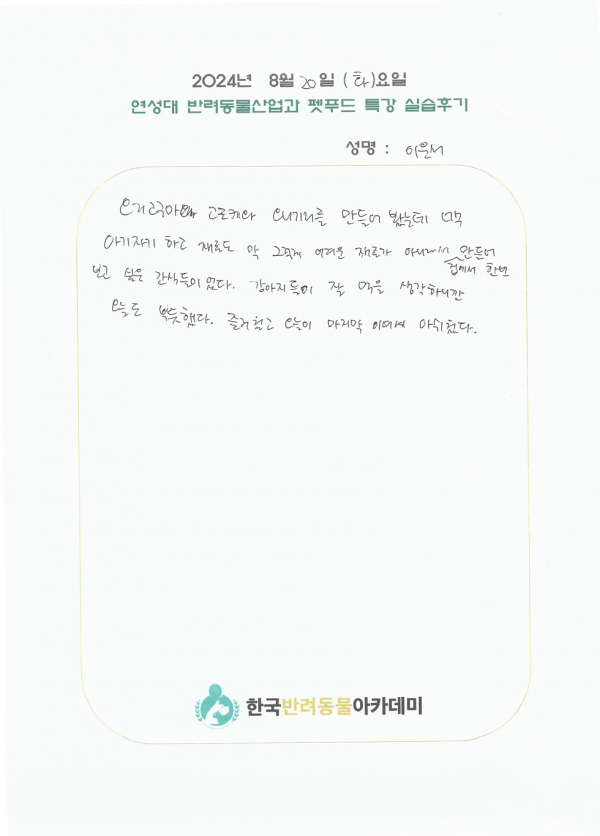 2024년 8월 20일 (화)요일
연성대 반려동물산업과 펫푸드 특강 실습후기
성명 : 이윤서
고로케와 를 만들어 봤는데 너무
아기자기 하고 재료도 막 그렇게 어려운 재료가 아니라서 집에서 한번 만들어
보고 싶은 간식들이었다. 강아지들이 잘 먹을 생각하니깐
오늘도 뿌듯했다. 즐거웠고 오늘이 마지막 이여서 아쉬웠다.
한국반려동물아카데미